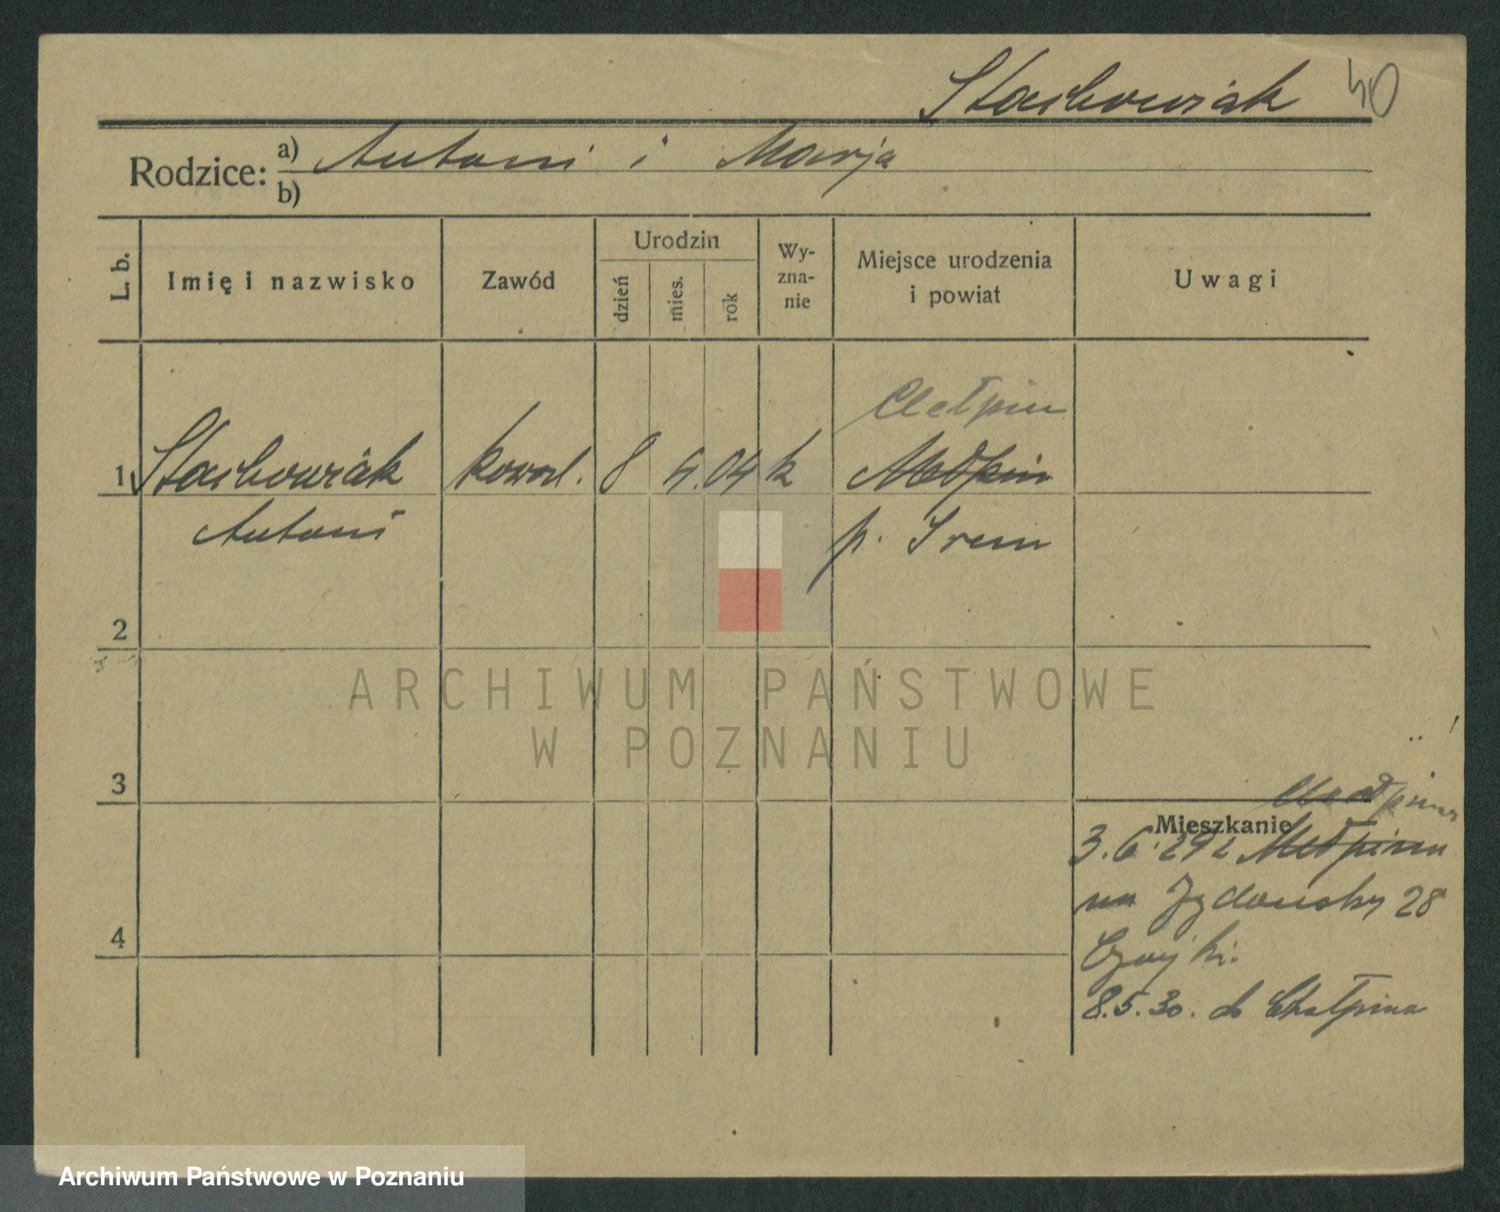 Stachowiak 40
Rodzice: a) Antoni i Marja
b)
L. b.
Imię i nazwisko
Zawód
Urodzin
dzień
mies.
rok
Wy-
zna-
nie
Miejsce urodzenia
i powiat
Uwagi
Chełpin
1 Stachowiak kowal. 8 5. 04 k Mełpin
Antoni p. Śrem
2
ARCHIWUM PAŃSTWOWE
W POZNANIU
3
Mieszkanie
3. 6. 29 z Mełpina
na Żydowsky 28
8. 5. 30. do Chełpina
4
Archiwum Państwowe w Poznaniu